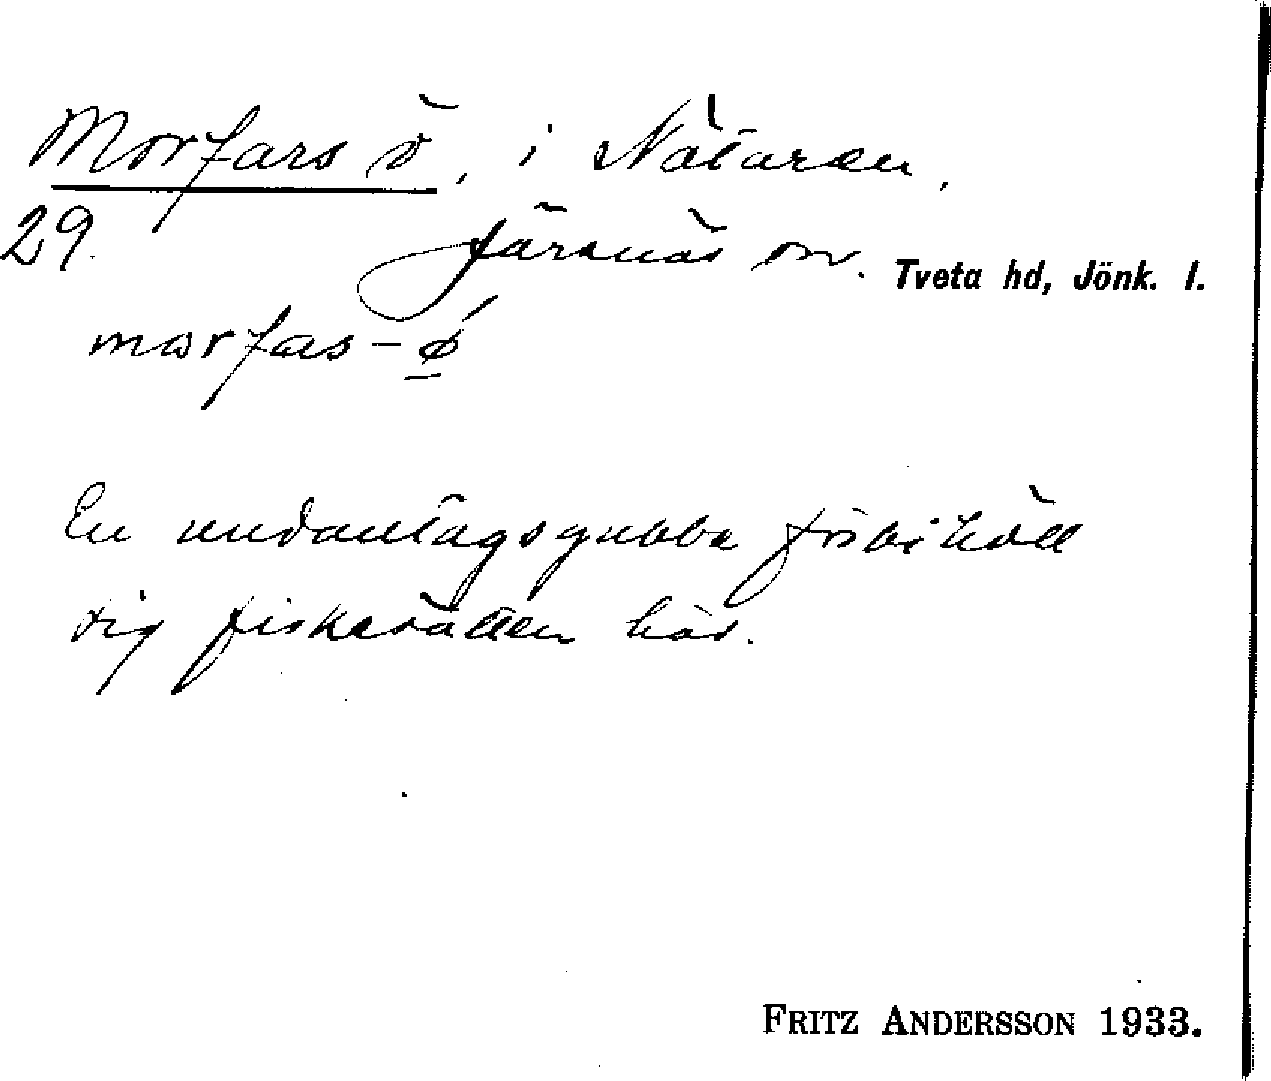 Morfars ö, i Nätaren.
29. Järsnäs sn. Tveta hd, Jönk. l.
morfas-ǿ
En undantagsgubbe förbihöll
sig fiskerätten här.
FRITZ ANDERSSON 1933.